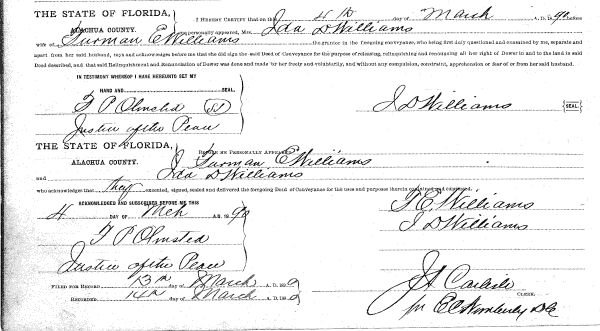 THE STATE OF FLORIDA,
ALACHUA COUNTY.
I HEREBY CERTIFY that on this 4th day of March A. D. 1890 before
me personally appeared, Mrs. Ida D Williams
wife of Furman E Williams the grantor in the foregoing conveyance, who being first duly questioned and examined by me, separate and
apart from her said husband, says and acknowledges before me that she did sign the said Deed of Conveyance for the purpose of relinquishing, and renouncing all her right of Dower in and to the land in said
Deed described, and that said Relinquishment and Renunciation of Dower was done and made by her freely and voluntarily, and without any compulsion, constraint, apprehension or fear of or from her said husband.
IN TESTIMONY WHEREOF I HAVE HEREUNTO SET MY
HAND AND SEAL.
F P Olmsted
I D Williams (SEAL)
Justice of the Peace
THE STATE OF FLORIDA,
ALACHUA COUNTY.
BEFORE ME PERSONALLY APPEARED
Furman E Williams
and Ida D Williams
who acknowledged that they executed, signed, sealed and delivered the foregoing Deed of Conveyance for the uses and purposes therein contained and
ACKNOWLEDGED AND SUBSCRIBED BEFORE ME THIS
4 DAY OF Mch A. D. 1890
F. E. Williams
I D Williams
F P Olmsted
Justice of the Peace
FILED FOR RECORD 13th day of March A. D. 189
RECORDED 14th day of March A. D. 189
J A Carlisle
CLERK.
per E C Wimberly D C